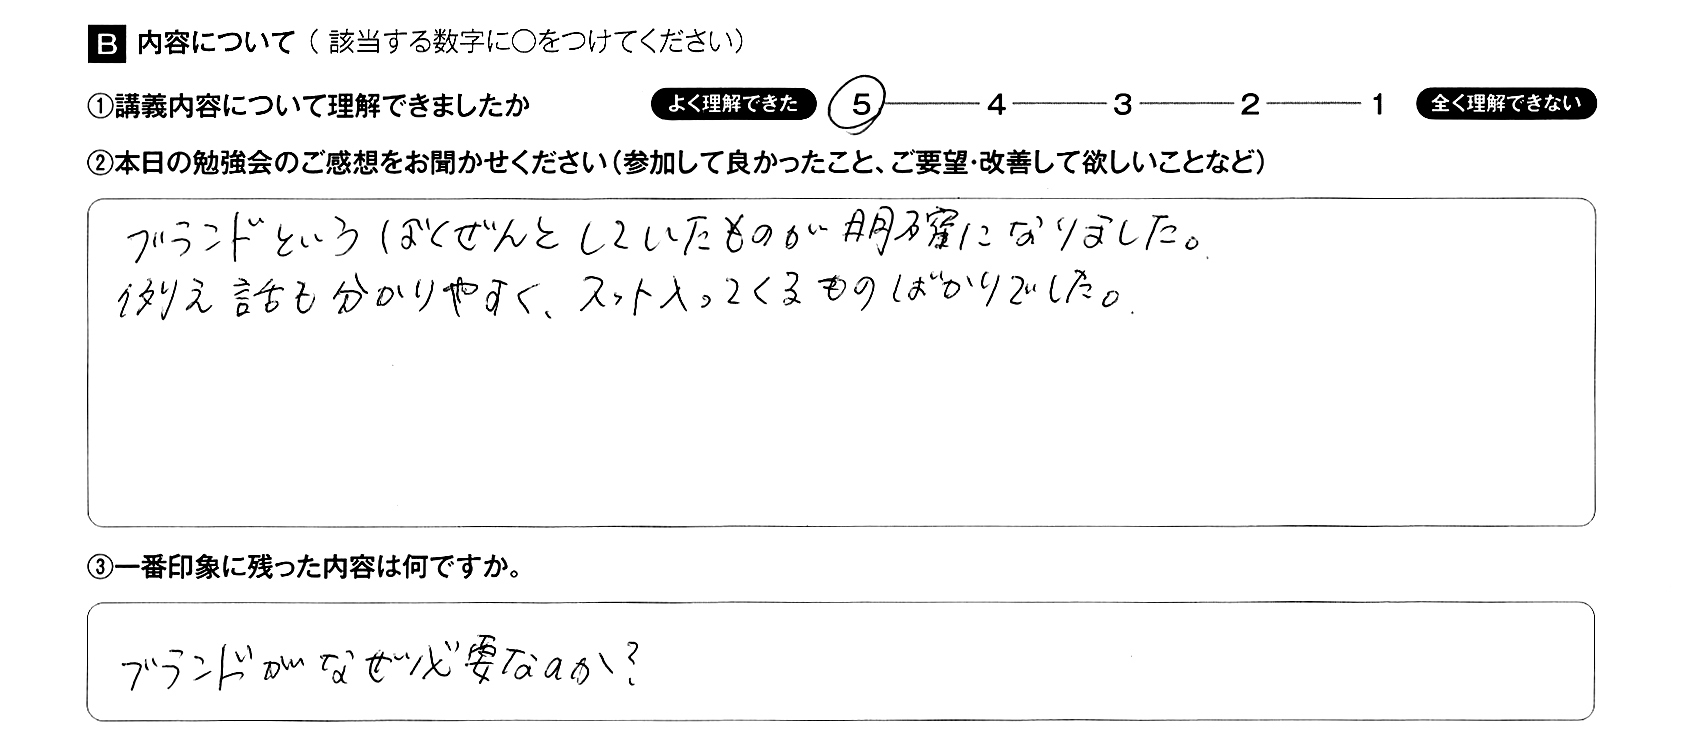 B 内容について（該当する数字に○をつけてください）
①講義内容について理解できましたか よく理解できた 5 4 3 2 1 全く理解できない
②本日の勉強会のご感想をお聞かせください（参加して良かったこと、ご要望・改善して欲しいことなど）
ブランドというばくぜんとしていたものが明確になりました。
例え話も分かりやすく、スット入ってくるものばかりでした。
③一番印象に残った内容は何ですか。
ブランドがなぜ必要なのか？